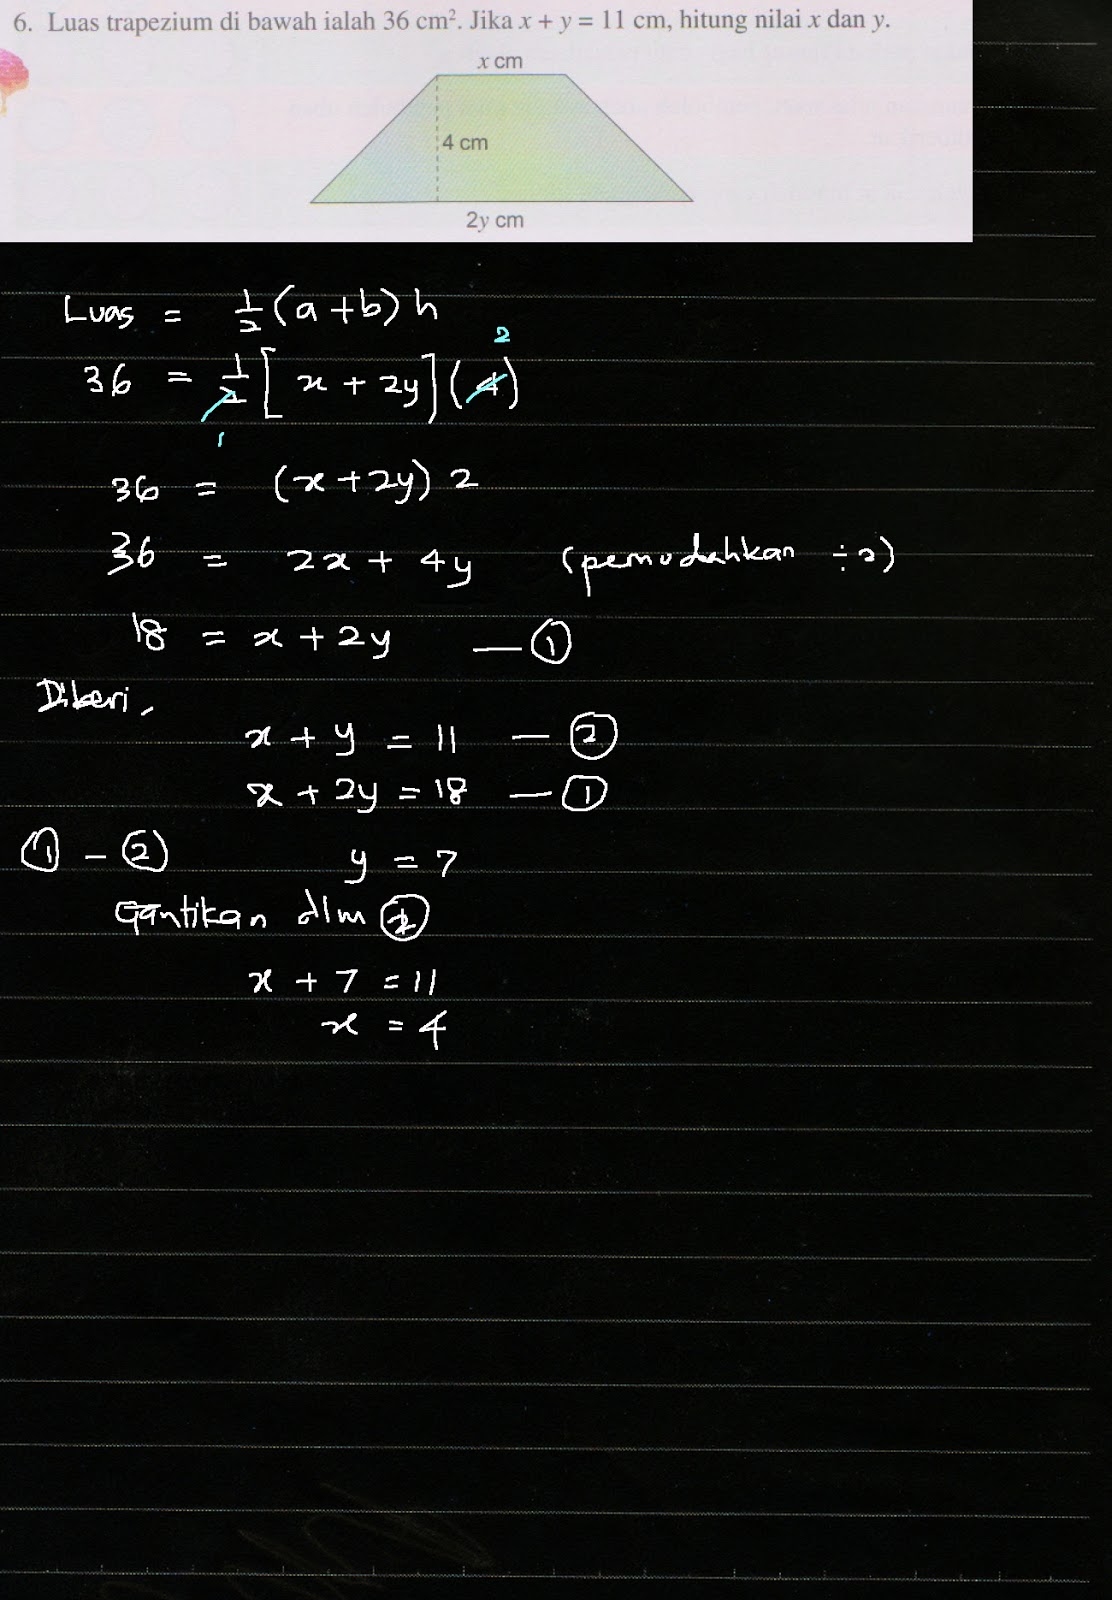 6. Luas trapezium di bawah ialah 36 cm². Jika x + y = 11 cm, hitung nilai x dan y.
x cm
4 cm
2y cm
Luas = 1/2 (a + b) h
2
36 = 1/2 [x + 2y] (4)
1
36 = (x + 2y) 2
36 = 2x + 4y (pemudahkan ÷2)
18 = x + 2y — ①
Diberi,
x + y = 11 — ②
x + 2y = 18 — ①
① - ② y = 7
Gantikan dlm ②
x + 7 = 11
x = 4